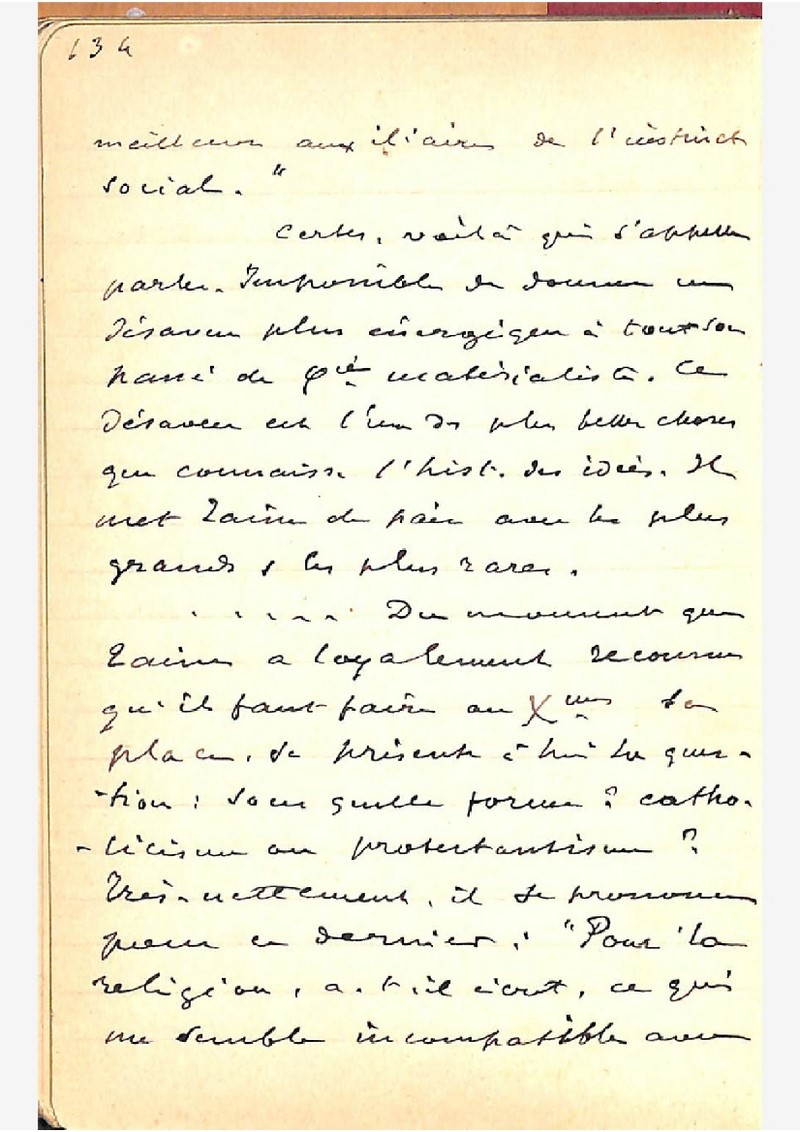 134
meilleurs auxiliaires de l'instinct
social."
Certes, voilà qui s'appelle
parler. Impossible de donner un
désaveu plus énergique à tout son
passé de φie matérialiste. Ce
désaveu est l'une des plus belles choses
que connaisse l'hist. des idées. Il
met Taine de pair avec les plus
grands & les plus rares.
. . . . . . Du moment que
Taine a loyalement reconnu
qu'il faut faire au Xme sa
place, se présente à lui la ques-
-tion : sous quelle forme ? catho-
-licisme ou protestantisme ?
Très-nettement, il se prononce
pour ce dernier : "Pour la
religion, a-t-il écrit, ce qui
me semble incompatible avec